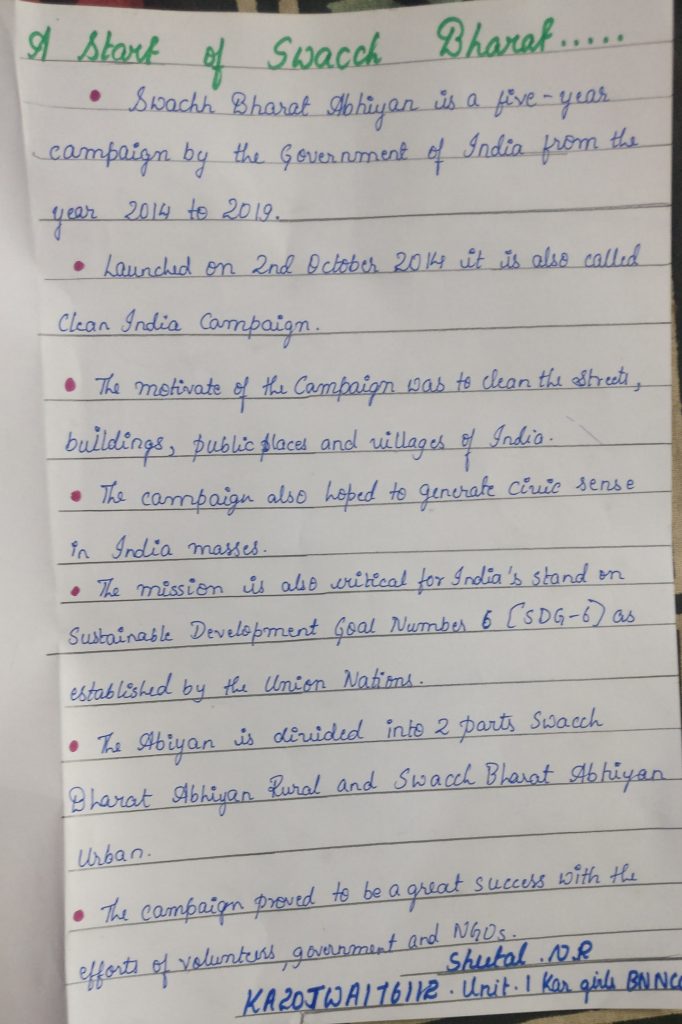 A Start of Swacch Bharat.....
• Swachh Bharat Abhiyan is a five-year
campaign by the Government of India from the
year 2014 to 2019.
• Launched on 2nd October 2014 it is also called
Clean India Campaign.
• The motivate of the Campaign was to clean the streets,
buildings, public places and villages of India.
• The campaign also hoped to generate civic sense
in India masses.
• The mission is also critical for India's stand on
Sustainable Development Goal Number 6 [SDG-6] as
established by the Union Nations.
• The Abiyan is divided into 2 parts Swacch
Bharat Abhiyan Rural and Swacch Bharat Abhiyan
Urban.
• The campaign proved to be a great success with the
efforts of volunteers, government and NGOs.
Sheetal .N.R
KA20JWA176112 . Unit. 1 Kar girls BN NCC